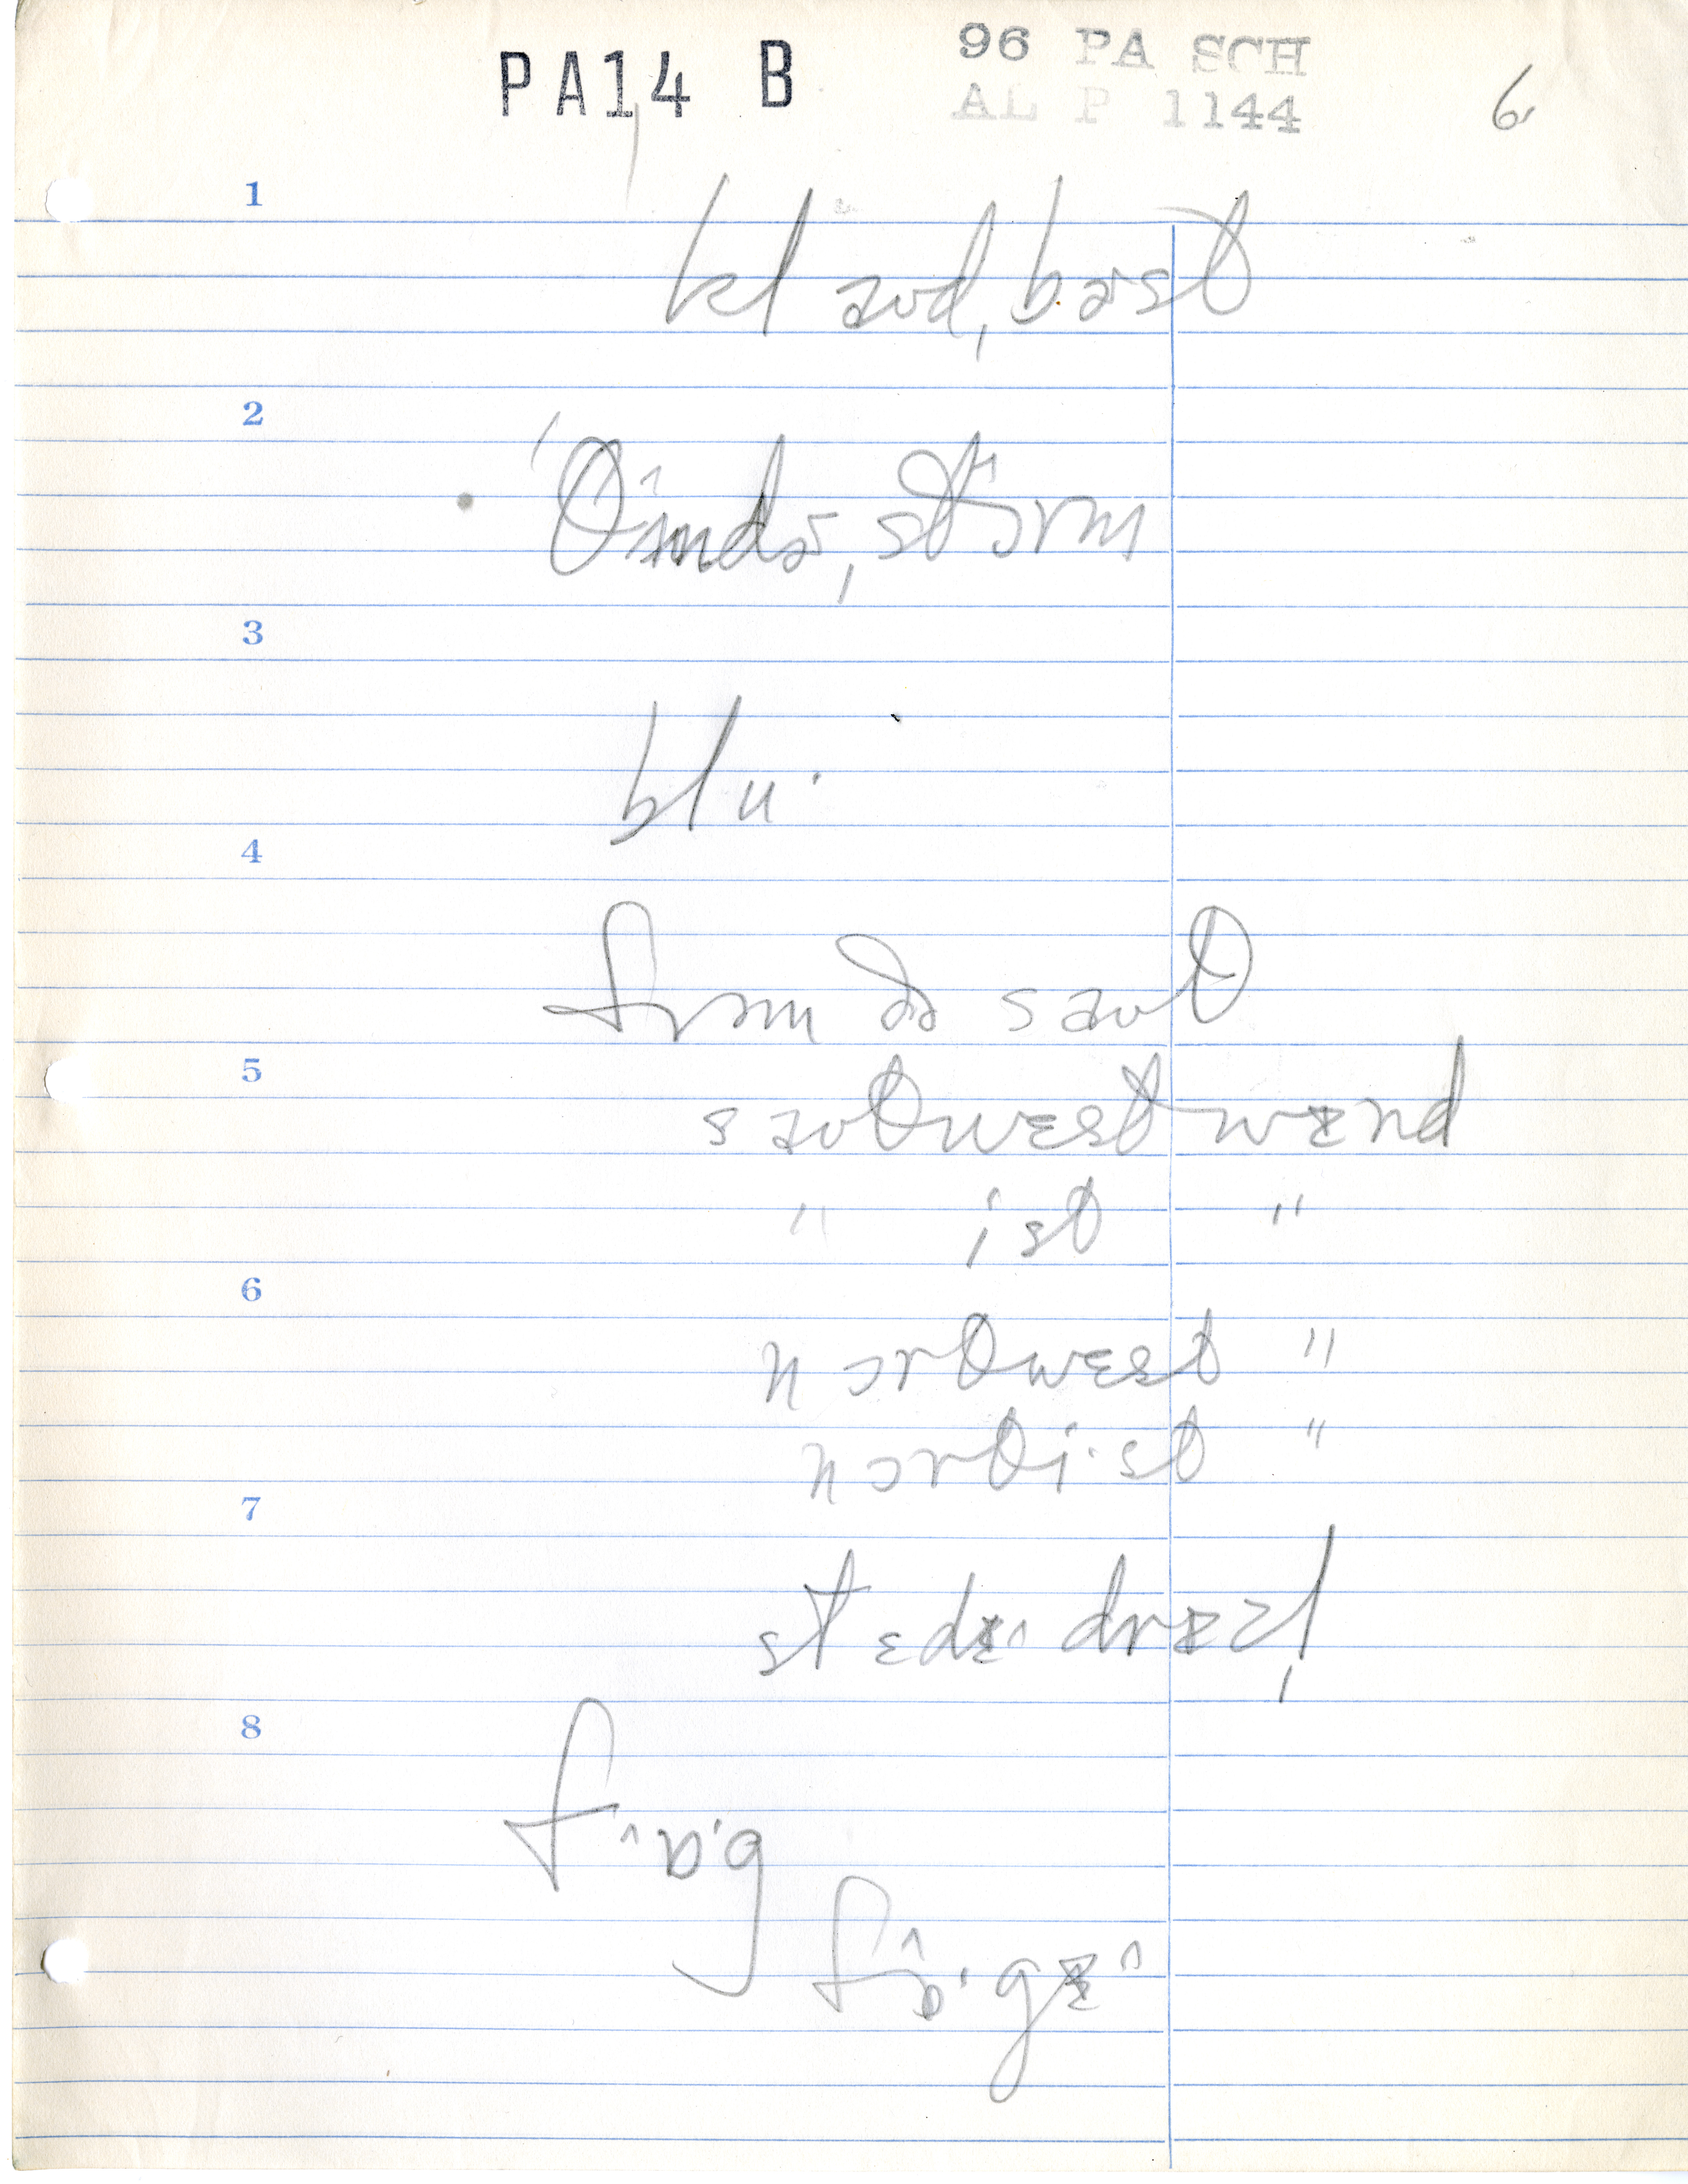 PA14 B
96 PA SCH
AL P 1144
6
1
klaʊd,bɚst
2
'θʌndɚ,stɔrm
3
blu·
4
frəm ðə saʊθ
5
saʊθwɛst wɪnd
" ist "
6
nɔrθwɛst "
nɔrθi·st "
7
drɪzl̩
8